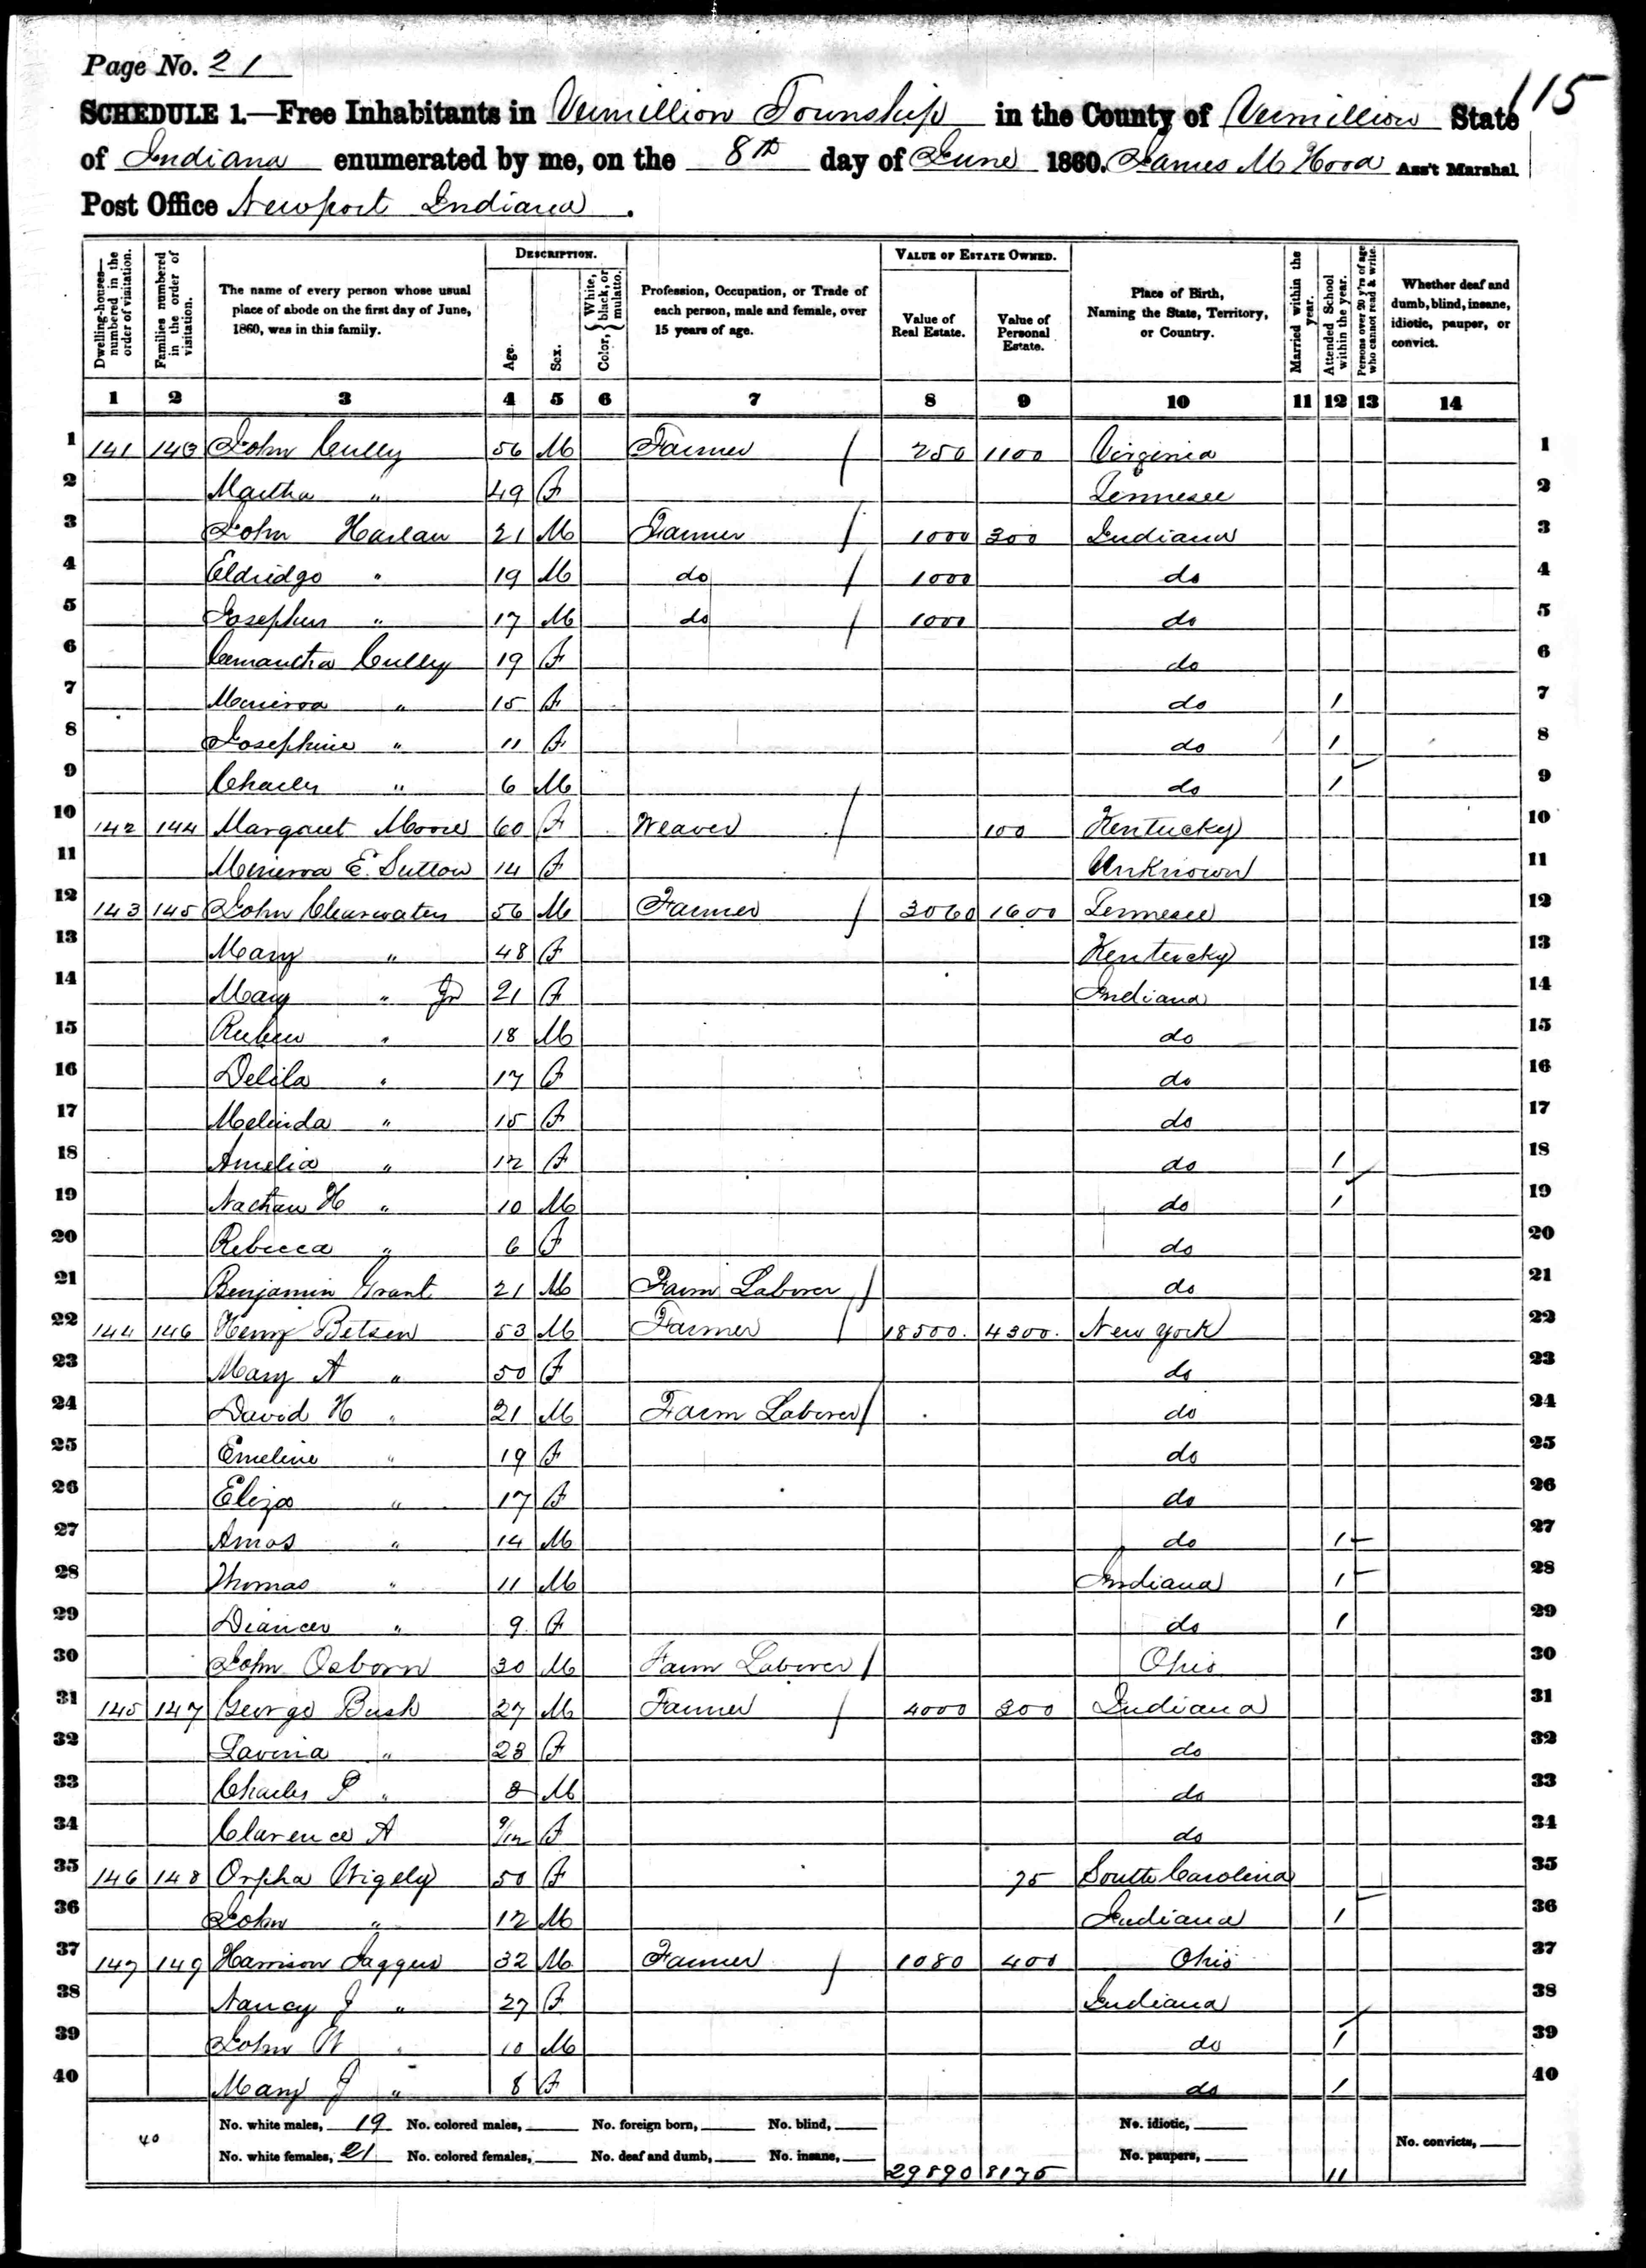 Page No. 21
115
SCHEDULE 1.—Free Inhabitants in Vermillion Township in the County of Vermillion State
of Indiana enumerated by me, on the 8th day of June 1860. James M Hood Ass't Marshal
Post Office Newport Indiana.
DESCRIPTION.
VALUE OF ESTATE OWNED.
Dwelling-houses—numbered in the order of visitation.
Families numbered in the order of visitation.
The name of every person whose usual place of abode on the first day of June, 1860, was in this family.
Age.
Sex.
Color, { White, black, or mulatto.
Profession, Occupation, or Trade of each person, male and female, over 15 years of age.
Value of Real Estate.
Value of Personal Estate.
Place of Birth, Naming the State, Territory, or Country.
Married within the year.
Attended School within the year.
Persons over 20 y'rs of age who cannot read & write.
Whether deaf and dumb, blind, insane, idiotic, pauper, or convict.
1 2 3 4 5 6 7 8 9 10 11 12 13 14
1 141 143 John Cully 56 M Farmer / 250 1100 Virginia 1
2 Martha " 49 F Tennesee 2
3 John Harlan 21 M Farmer / 1000 300 Indiana 3
4 Eldridge " 19 M do / 1000 do 4
5 Josephus " 17 M do / 1000 do 5
6 Cully 19 F do 6
7 Menerva " 15 F do 1 7
8 Josephine " 11 F do 1 8
9 Charles " 6 M do 1 9
10 142 144 Margaret Moore 60 F Weaver / 100 Kentucky 10
11 Menerva E. Sutton 14 F Unknown 11
12 143 145 John Clearwaters 56 M Farmer / 3060 1600 Tennesee 12
13 Mary " 48 F Kentucky 13
14 Mary " Jr 21 F Indiana 14
15 Ruben " 18 M do 15
16 Delila " 17 F do 16
17 Melinda " 15 F do 17
18 Amelia " 12 F do 1 18
19 Nathan H " 10 M do 1 19
20 Rebecca " 6 F do 20
21 Benjamin Grant 21 M Farm Laborer / do 21
22 144 146 Henry Betsen 53 M Farmer / 18500. 4300. New York 22
23 Mary A " 50 F do 23
24 David H " 21 M Farm Laborer / do 24
25 Emeline " 19 F do 25
26 Eliza " 17 F do 26
27 Amos " 14 M do 1 27
28 Thomas " 11 M Indiana 1 28
29 " 9 F do 1 29
30 John Osborn 30 M Farm Laborer / Ohio 30
31 145 147 George Bush 27 M Farmer / 4000 300 Indiana 31
32 Lavina " 23 F do 32
33 Charles P " M do 33
34 Clarence A 9/12 F do 34
35 146 148 Orpha Wigely 50 F 75 South Carolina 35
36 John " 12 M Indiana 1 36
37 147 149 Harrison Jaggers 32 M Farmer / 1080 400 Ohio 37
38 Nancy J " 27 F Indiana 38
39 John W " 10 M do 1 39
40 Mary J " 8 F do 1 40
No. white males, 19 No. colored males, No. foreign born, No. blind, No. idiotic,
40 No. convicts,
No. white females, 21 No. colored females, No. deaf and dumb, No. insane, No. paupers,
29890 8175 11